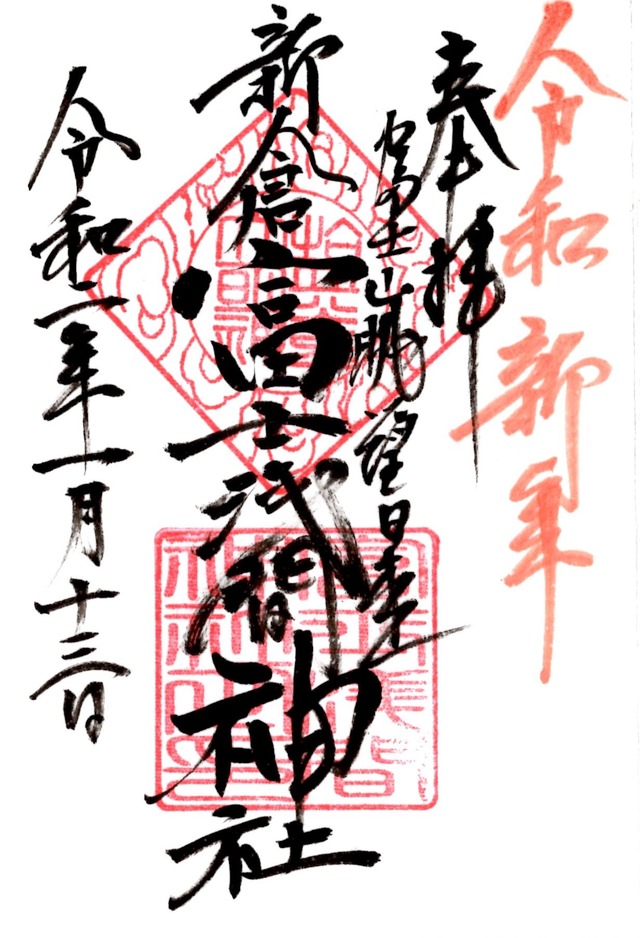 令和 新年
奉拝
富士山眺望日本一
新倉富士浅間神社
令和二年一月十三日